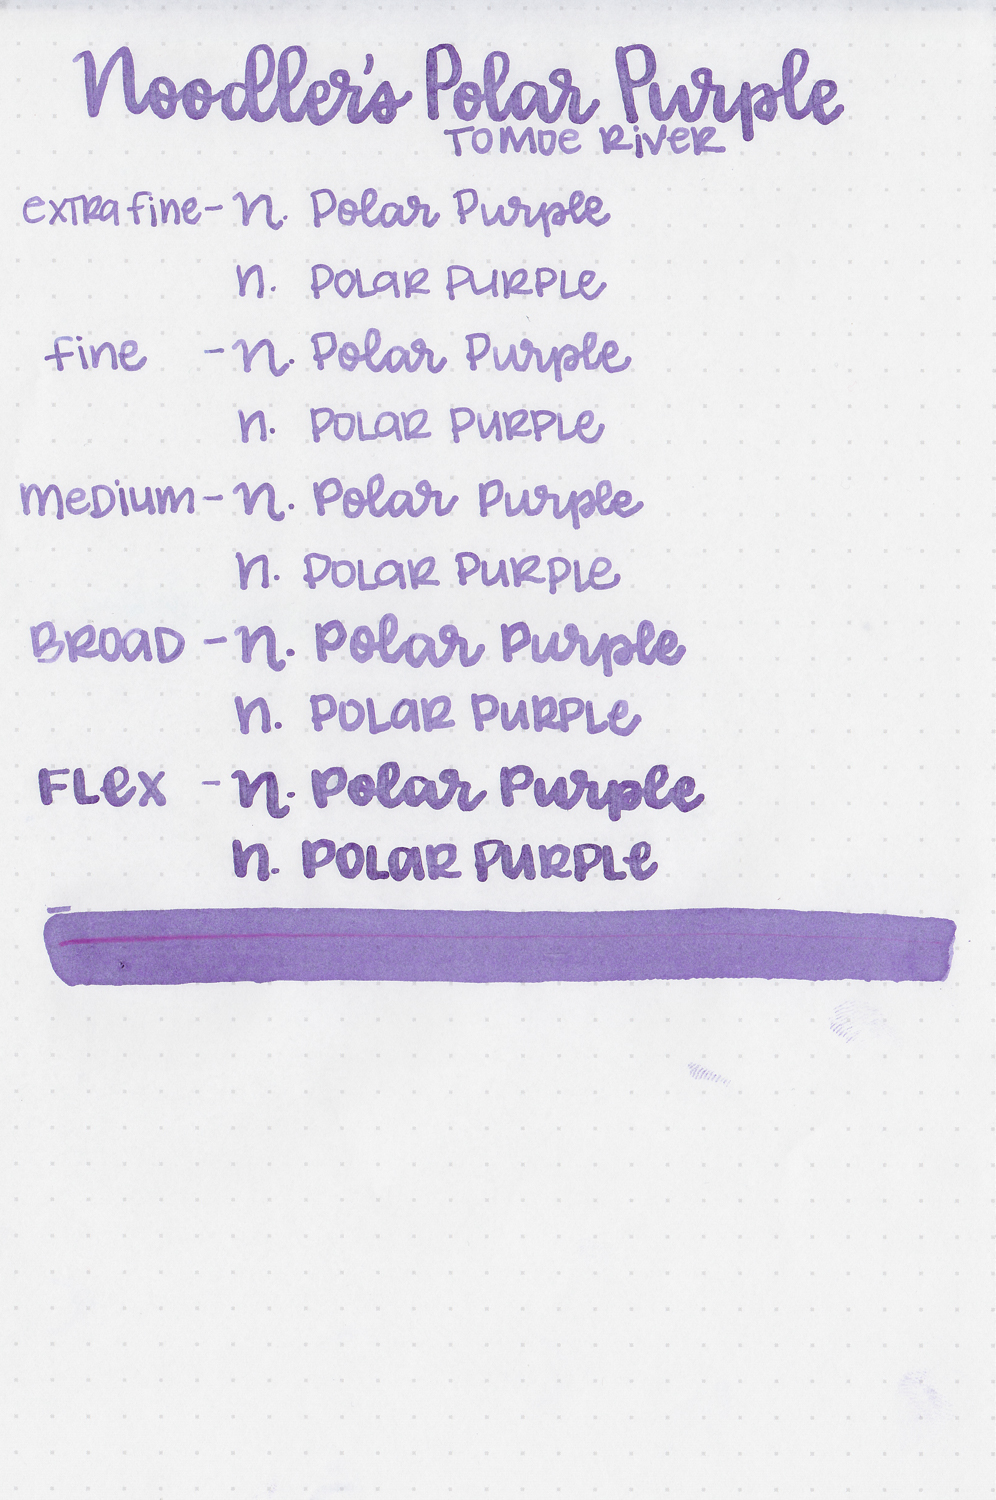 Noodler's Polar Purple
Tomoe River
extra fine - n. Polar Purple
n. Polar Purple
fine - n. Polar Purple
n. Polar Purple
medium - n. Polar Purple
n. Polar Purple
Broad - n. Polar Purple
n. Polar Purple
Flex - n. Polar Purple
n. Polar Purple